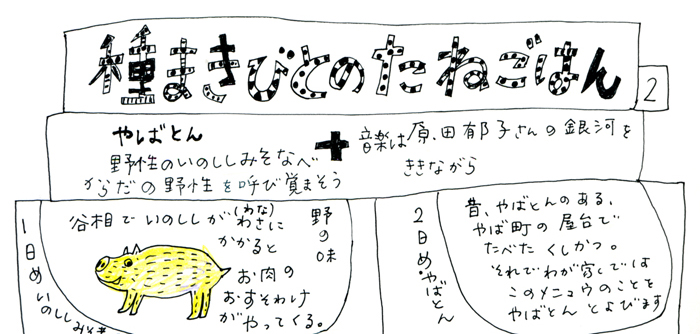 種まきびとのたねごはん
2
やばとん
野性のいのししみそなべ
からだの野性を呼び覚まそう
+
音楽は原田郁子さんの銀河を
ききながら
1日め いのししみそ
野の味
谷相でいのししが(わな)わさに
かかると
お肉の
おすそわけ
がやってくる。
2日め・やばとん
昔、やばとんのある、
やば町の屋台で
たべたくしかつ。
それでわが家では
このメニュウのことを
やばとんとよびます